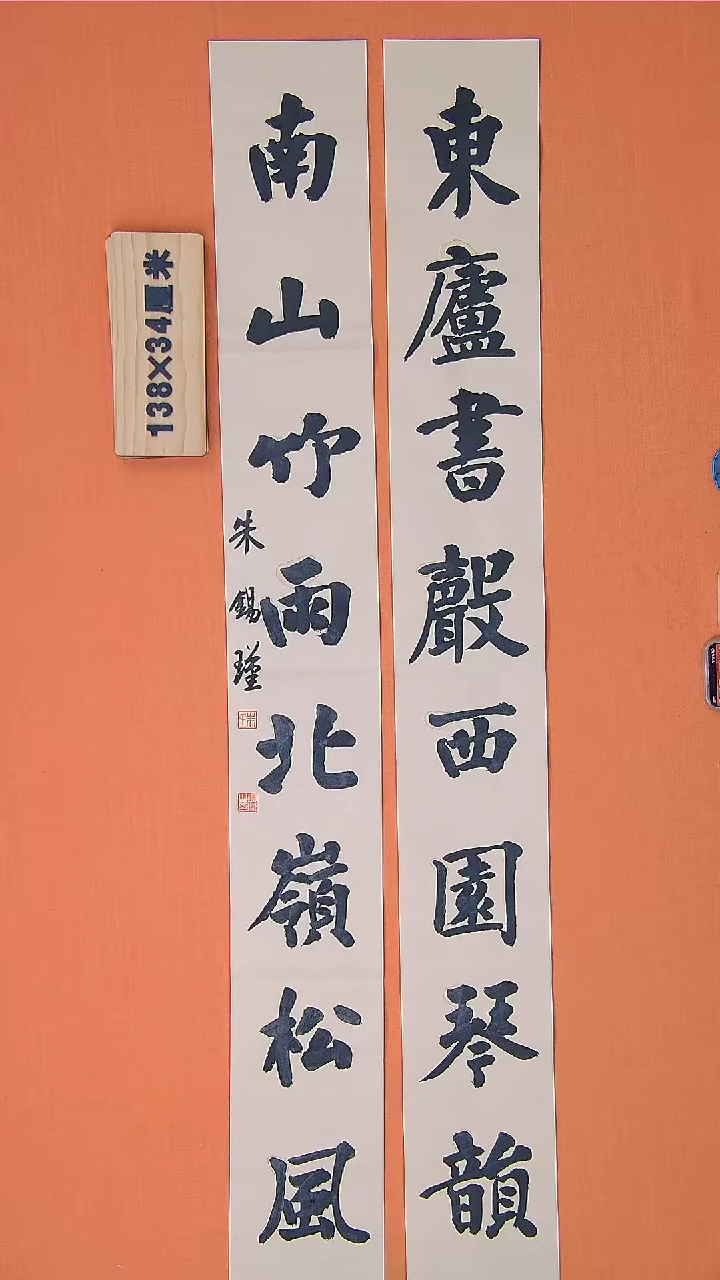 東廬書聲西園琴韻
南山竹雨北嶺松風
朱錫瑾
138×34厘米